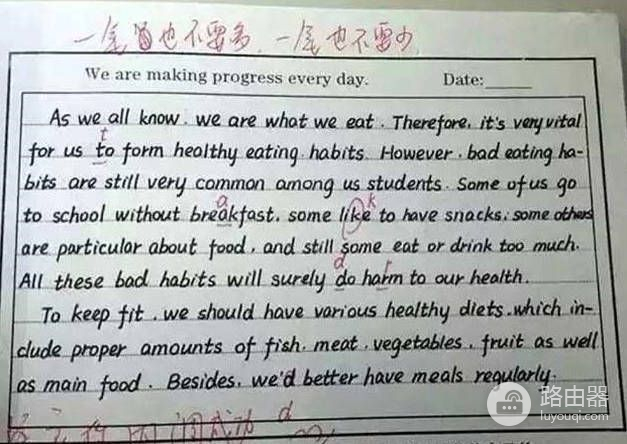 一尾也不要多、一尾也不要少
We are making progress every day. Date:
As we all know, we are what we eat. Therefore, it's very vital
t
for us to form healthy eating habits. However, bad eating ha-
bits are still very common among us students. Some of us go
a k
to school without breakfast, some like to have snacks, some others
are particular about food, and still some eat or drink too much.
d r
All these bad habits will surely do harm to our health.
To keep fit, we should have various healthy diets, which in-
clude proper amounts of fish, meat, vegetables, fruit as well
as main food. Besides, we'd better have meals regularly.
d
路由器
luyouqi.com